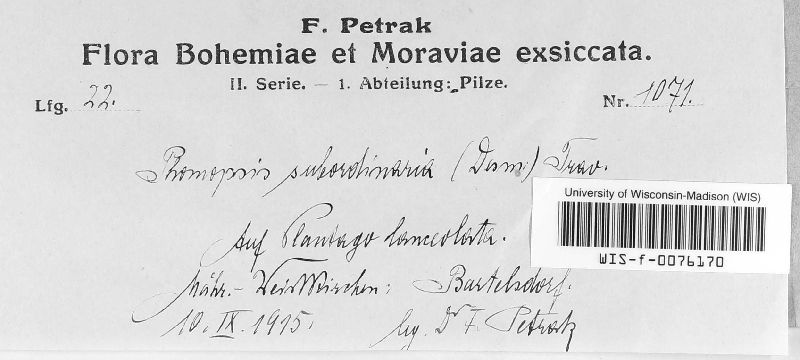 F. Petrak
Flora Bohemiae et Moraviae exsiccata.
II. Serie. — 1. Abteilung: Pilze.
Lfg. 22. Nr. 1071.
Phomopsis subordinaria (Desm.) Trav.
University of Wisconsin-Madison (WIS)
WIS-f-0076170
Auf Plantago lanceolata.
Mähr.-Weisskirchen: Bartelsdorf.
10. IX. 1915. leg. Dr F. Petrak